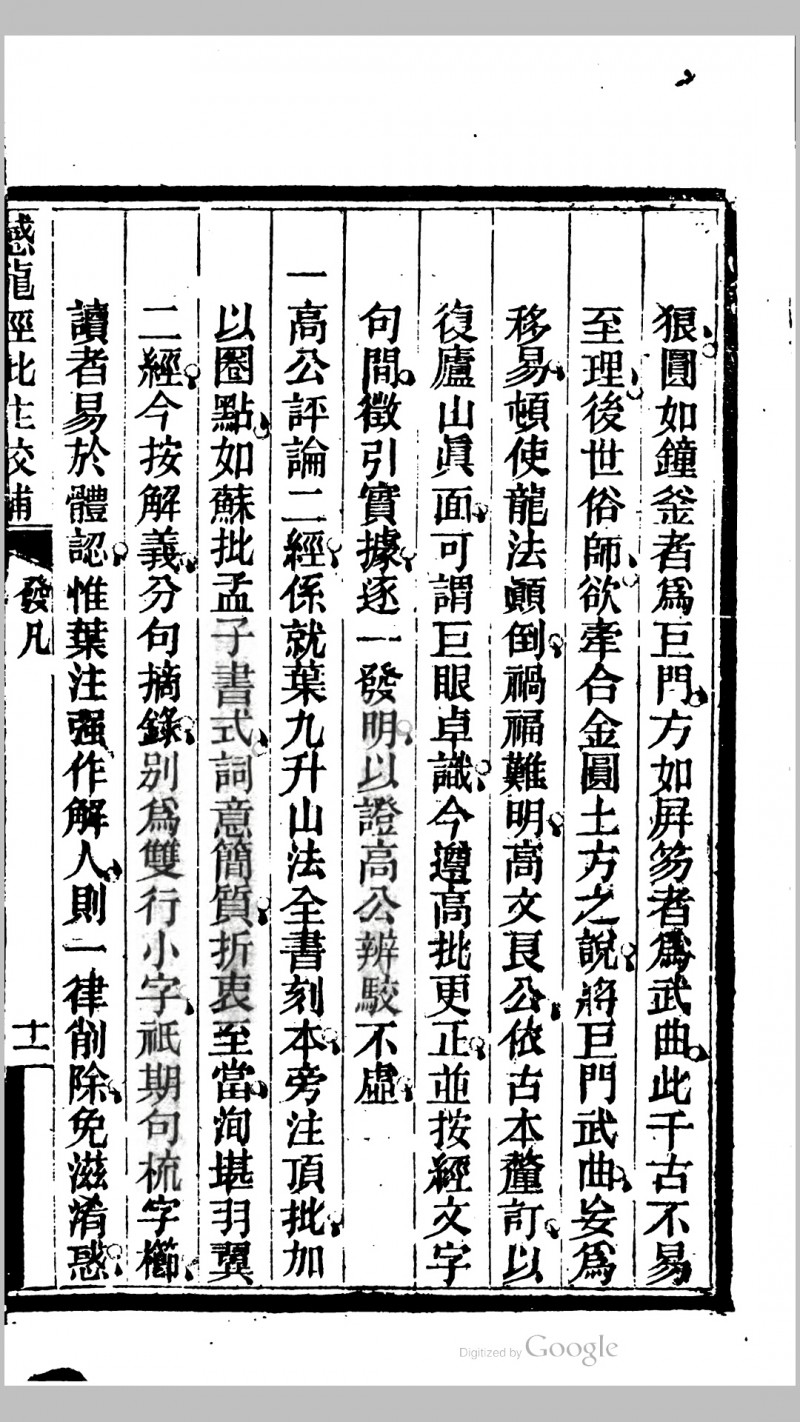 狠圓如鐘釜者爲巨門方如屏笏者爲武曲此千古不易
至理後世俗師欲牽合金圓土方之說將巨門武曲妄爲
移易頓使龍法顚倒禍福難明高文良公依古本釐訂以
復廬山眞面可謂巨眼卓識今遵高批更正並按經文字
句間徵引實據逐一發明以證高公辨駁不虛
一高公評論二經係就葉九升山法全書刻本旁注頂批加
以圈點如蘇批孟子書式詞意簡質折衷至當洵堪羽翼
二經今按解義分句摘錄別爲雙行小字祇期句梳字櫛
讀者易於體認惟葉注强作解人則一律削除免滋淆惑
感龍經批注校補 發凡 十一
Digitized by Google